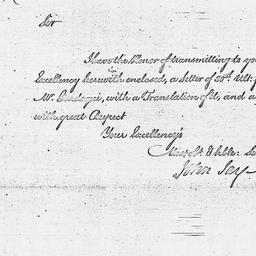 Sir
I have the Honor of transmitting to you
Excellency herewith enclosed, a Letter of 28th. Ult.
Mr. with a Translation of it, and a
with great Respect
Your Excellency's
Most Obt. & hble: Se
John Jay